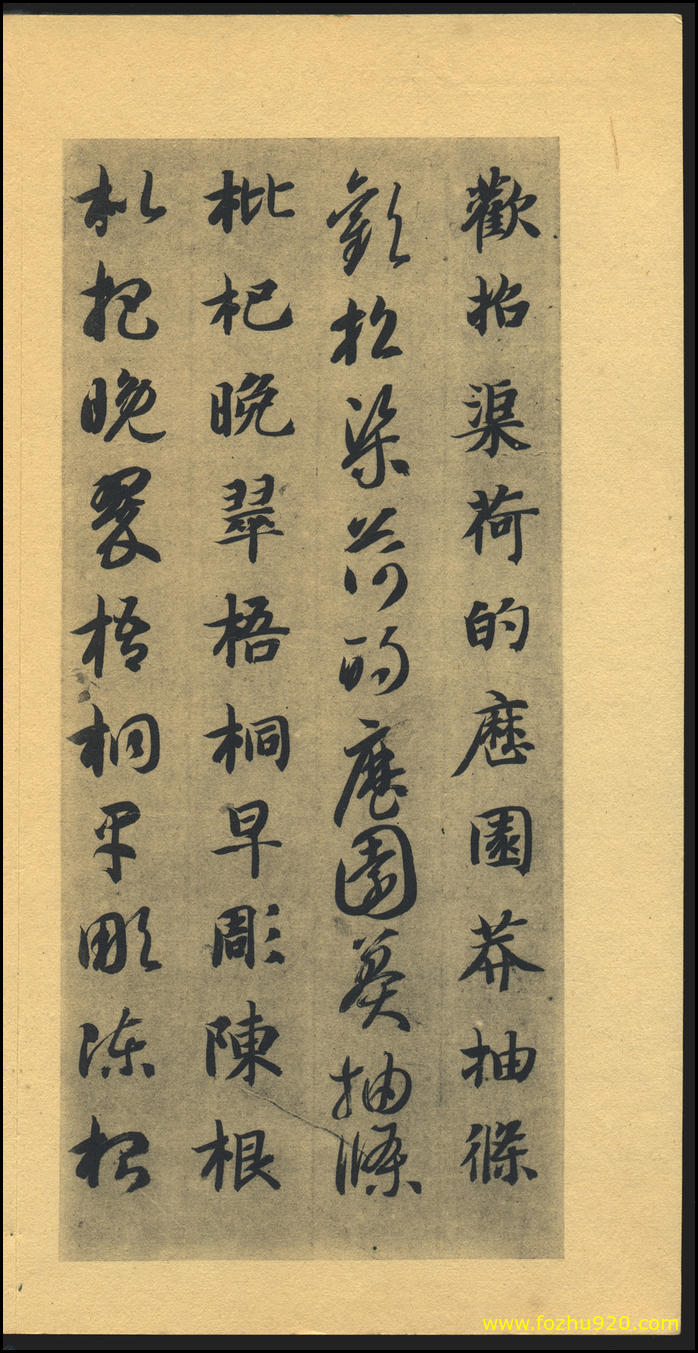 歡招渠荷的歷園莽抽條
歡招渠荷的歷園莽抽條
枇杷晚翠梧桐早彫陳根
枇杷晚翠梧桐早彫陳根
www.fozhu920.com